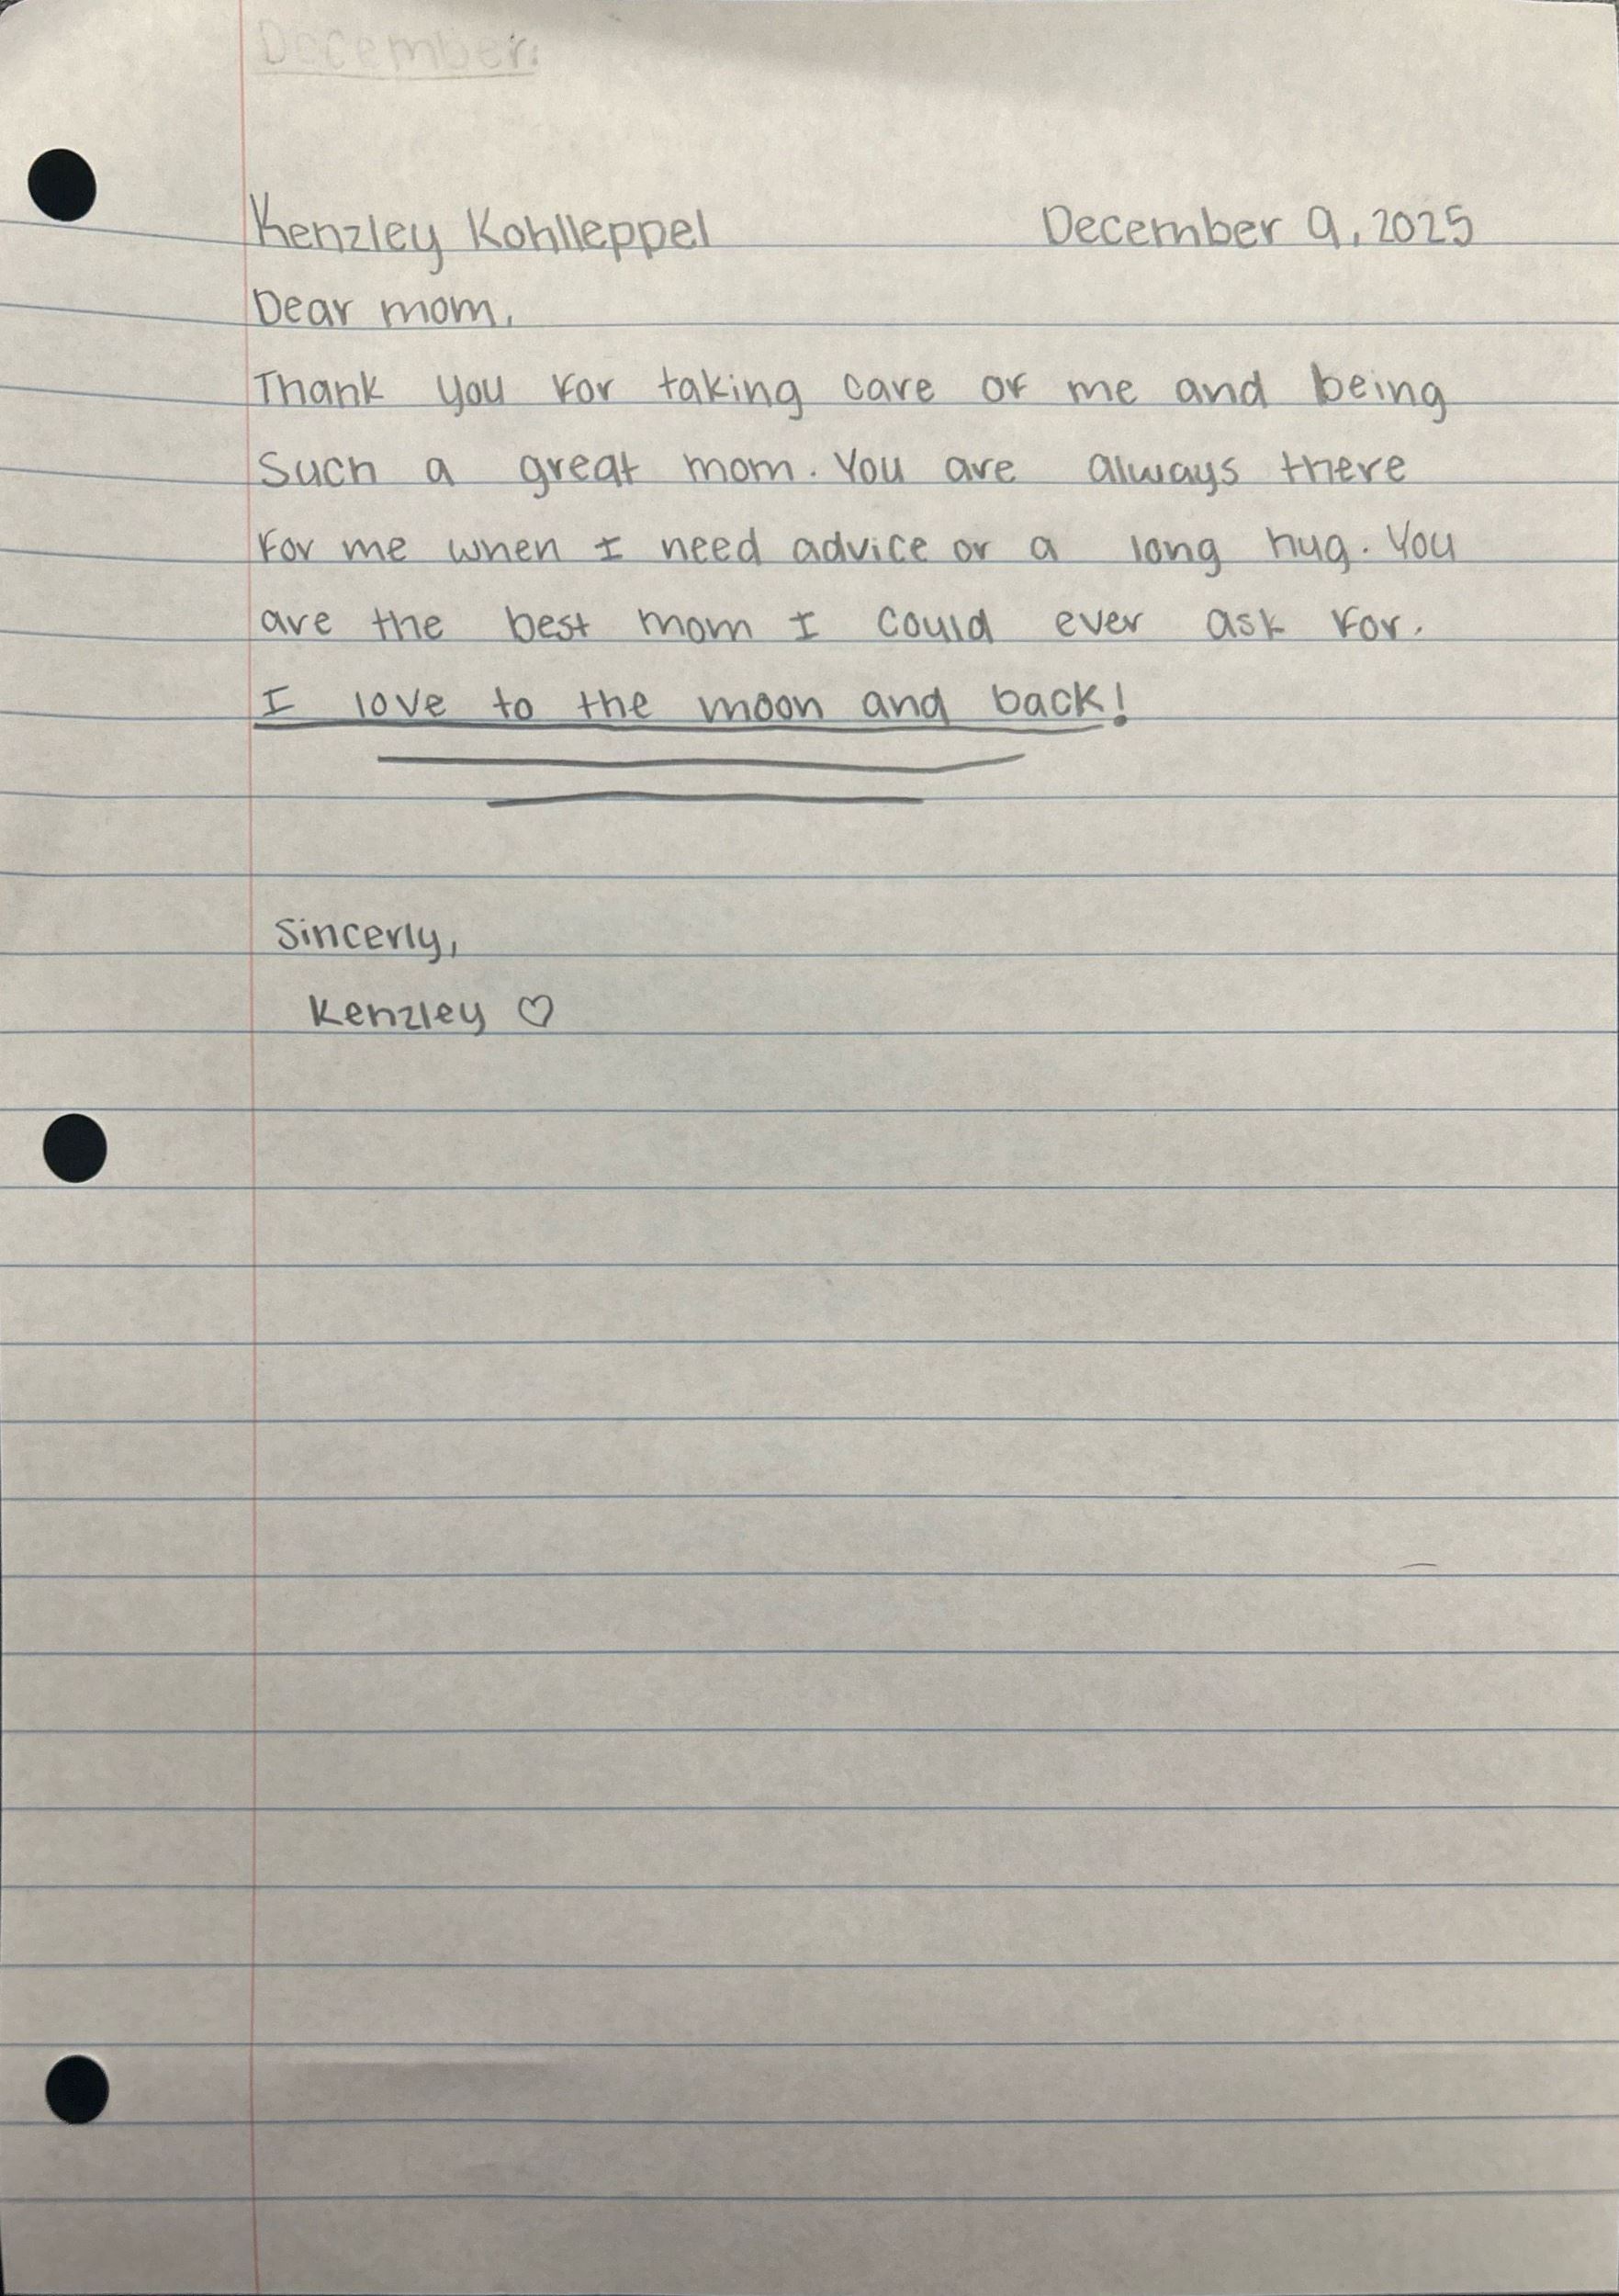 December
Kenzley Kohlleppel December 9, 2025
Dear mom,
Thank you for taking care of me and being
Such a great mom. You are always there
for me when I need advice or a long hug. You
are the best mom I could ever ask for.
I love to the moon and back!
Sincerly,
Kenzley ♡